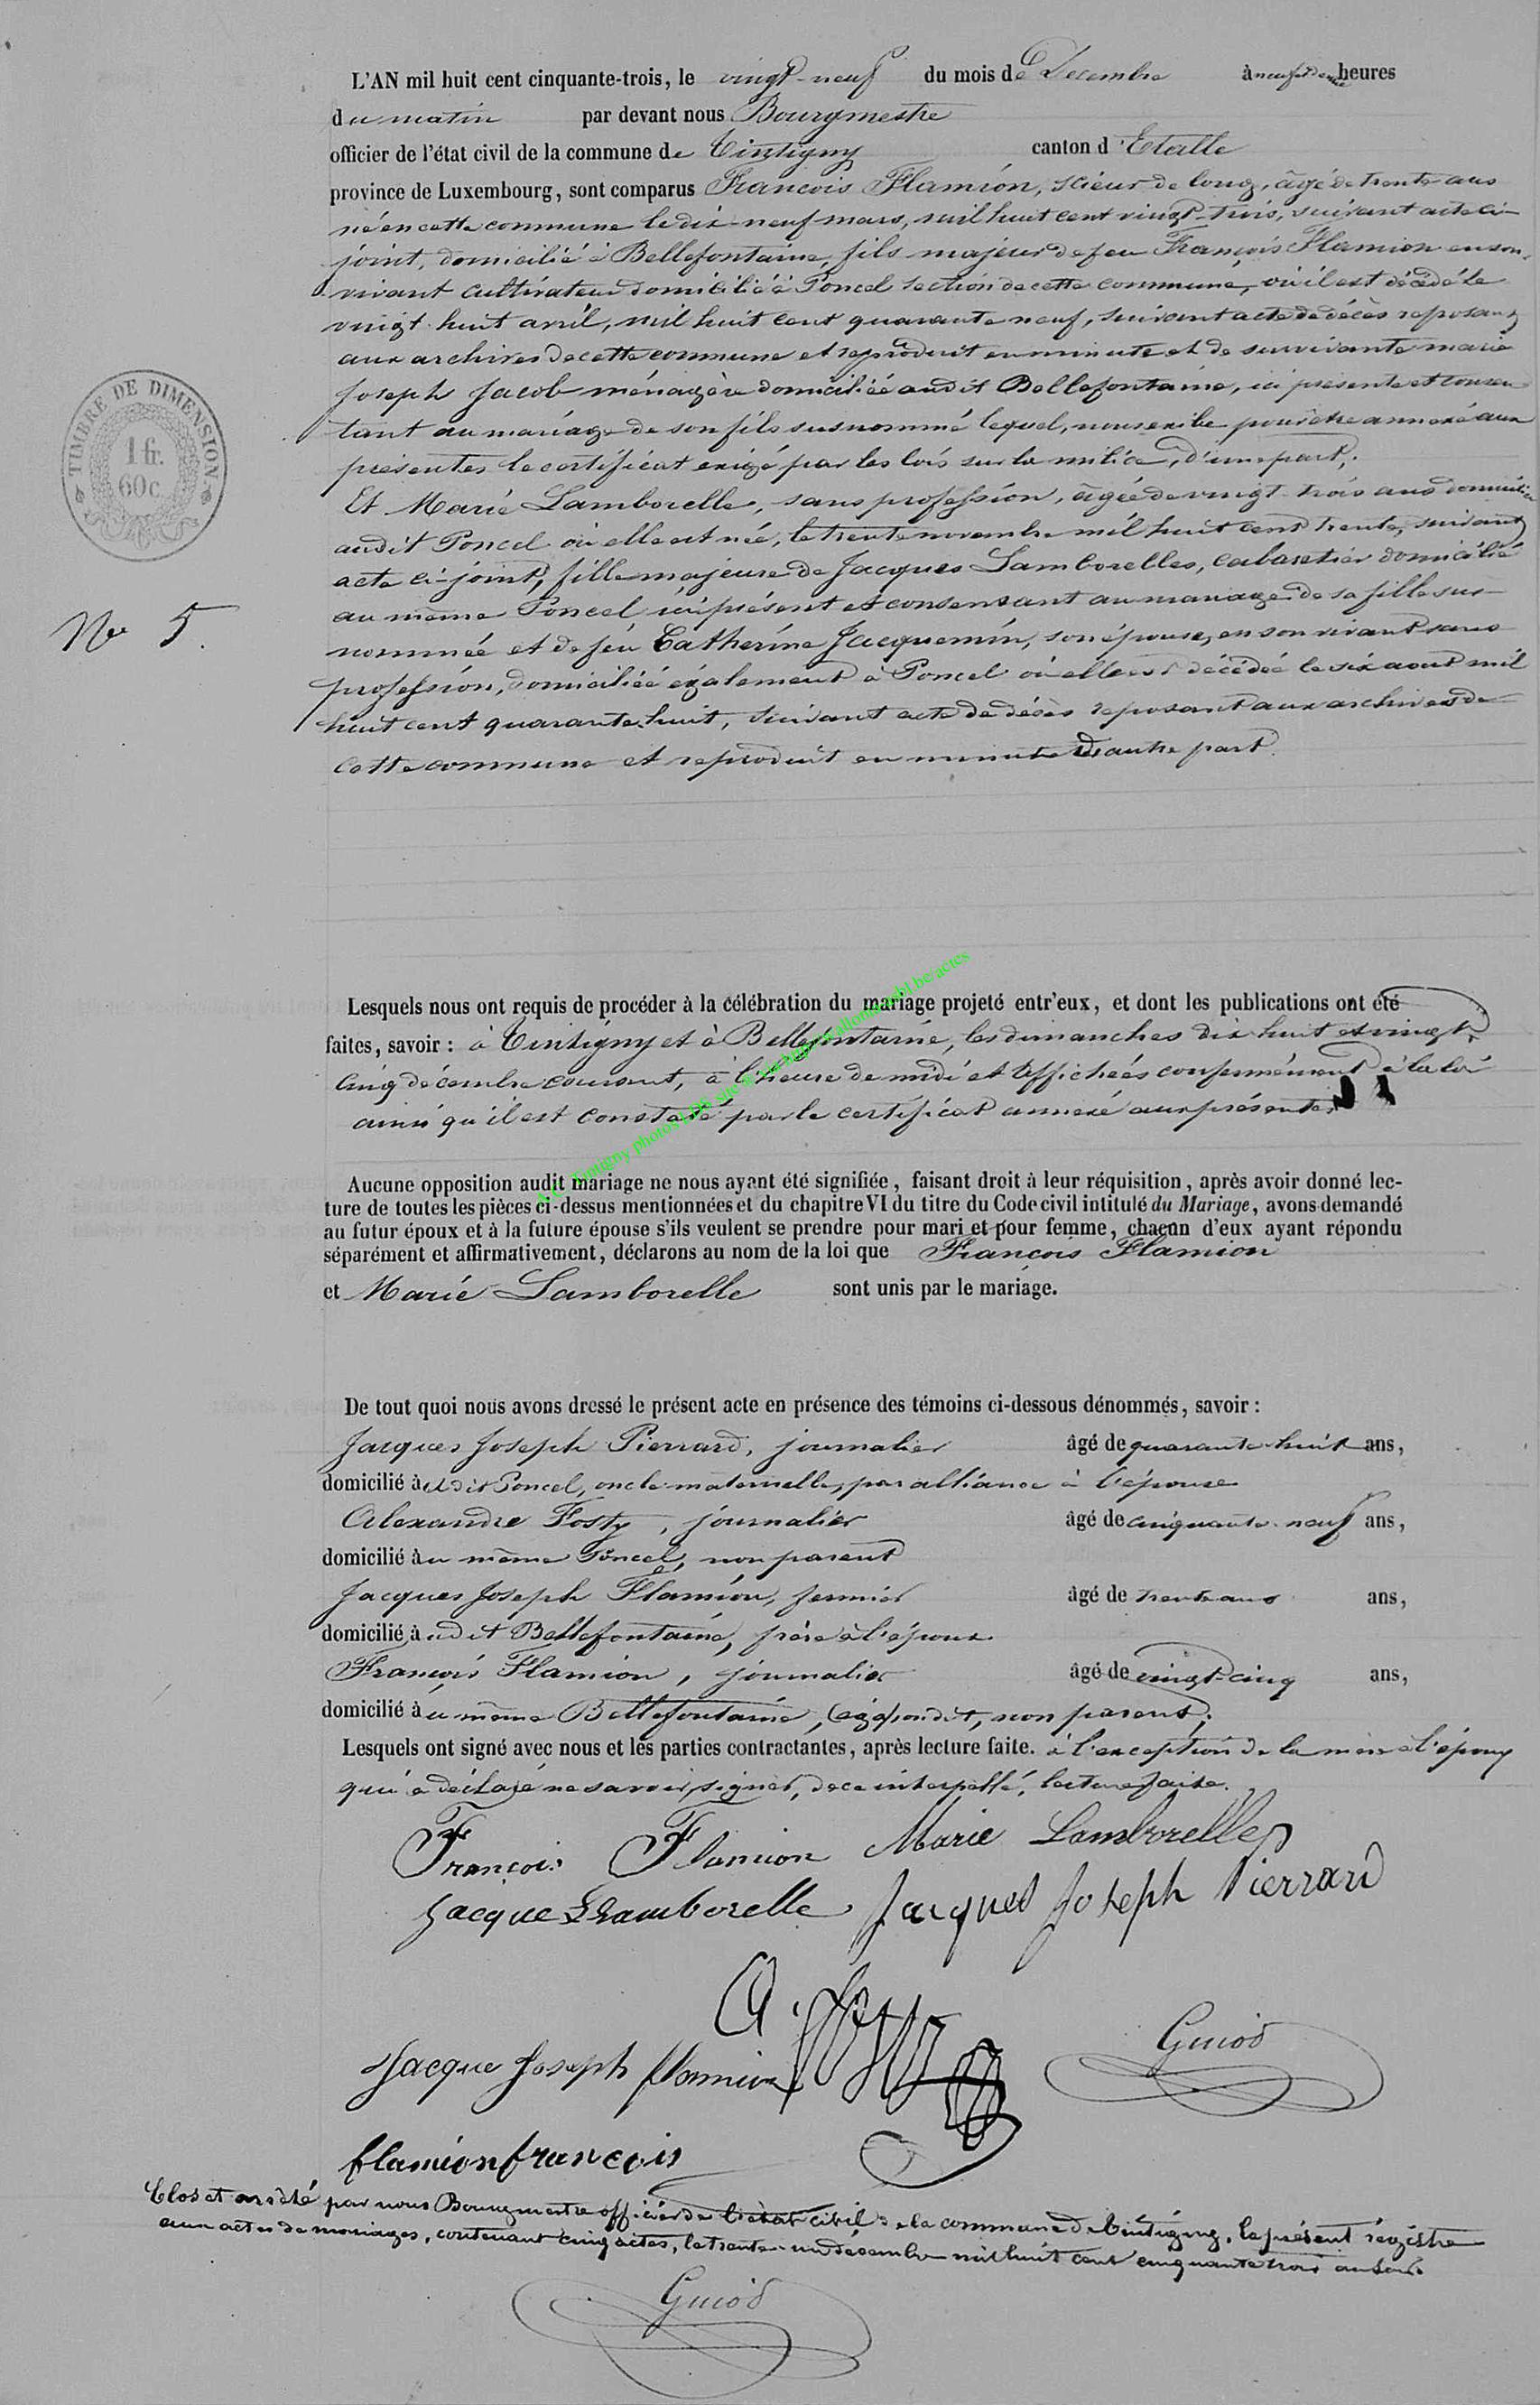 L'AN mil huit cent cinquante-trois, le vingt-neuf du mois de Décembre à neuf et demie heures
du matin par devant nous Bourgmestre
officier de l'état civil de la commune de Tintigny canton d'Etalle
province de Luxembourg, sont comparus François Flamion, scieur de long, âgé de trente ans
né en cette commune le dix-neuf mars, mil huit cent vingt-trois, suivant acte ci-
joint, domicilié à Bellefontaine, fils majeur de feu François Flamion en son
vivant cultivateur domicilié à Poncel section de cette commune, où il est décédé le
vingt-huit avril, mil huit cent quarante neuf, suivant acte de décès reposant
aux archives de cette commune et reproduit en minute et de survivante marie
Joseph Jacob ménagère domiciliée audit Bellefontaine, ici présente et consen
tant au mariage de son fils susnommé lequel, nous exibe pour être annexé aux
présentes le certificat exigé par les lois sur la milice, d'une part,
Et Marie Lamborelle, sans profession, âgée de vingt-trois ans domiciliée
audit Poncel où elle est née, le trente novembre mil huit cent trente, suivant
acte ci-joint, fille majeure de Jacques Lamborelles, cabaretier domicilié
au même Poncel, ici présent et consensant au mariage de sa fille sus-
nommée et de feu Catherine Jacquemin, son épouse, en son vivant sans
profession, domiciliée également à Poncel où elle est décédée le six aout mil
huit cent quarante huit, suivant acte de décès reposant aux archives de
cette commune et reproduit en minute d'autre part.
TIMBRE DE DIMENSION
1 fr.
60 c.
No 5.
Lesquels nous ont requis de procéder à la célébration du mariage projeté entr'eux, et dont les publications ont été
faites, savoir : à Tintigny et à Bellefontaine, les dimanches dix huit et vingt
cinq décembre courant, à l'heure de midi et affichées conformément à la loi
ainsi qu'il est constaté par le certificat annexé aux présentes
A.C. Tintigny photos LDS site
Aucune opposition audit mariage ne nous ayant été signifiée, faisant droit à leur réquisition, après avoir donné lec-
ture de toutes les pièces ci-dessus mentionnées et du chapitre VI du titre du Code civil intitulé du Mariage, avons demandé
au futur époux et à la future épouse s'ils veulent se prendre pour mari et pour femme, chacun d'eux ayant répondu
séparément et affirmativement, déclarons au nom de la loi que François Flamion
et Marie Lamborelle sont unis par le mariage.
De tout quoi nous avons dressé le présent acte en présence des témoins ci-dessous dénommés, savoir :
Jacques Joseph Pierrard, journalier âgé de quarante-huit ans,
domicilié audit Poncel, oncle maternelle, par alliance à l'épouse
Alexandre Fosty, journalier âgé de cinquante-neuf ans,
domicilié au même Poncel, non parent
Jacques Joseph Flamion, fermier âgé de trente ans ans,
domicilié audit Bellefontaine, frère à l'époux
François Flamion, journalier âgé de vingt-cinq ans,
domicilié au même Bellefontaine, non parent,
Lesquels ont signé avec nous et les parties contractantes, après lecture faite. à l'exception de la mère à l'époux
qui a déclaré ne savoir signer, de ce interpellé, lecture faite.
François Flamion Marie Lamborelle
Jacque Lamborelle Jacques Joseph Pierrard
A. Fosty
Jacque Joseph flamion
Guiot
flamion françois
Clos et arrêté par nous Bourgmestre officier de l'état civil de la commune de Tintigny, le présent régistre
aux actes de mariages, contenant cinq actes, le trente-un décembre mil huit cent cinquante trois au soir.
Guiot